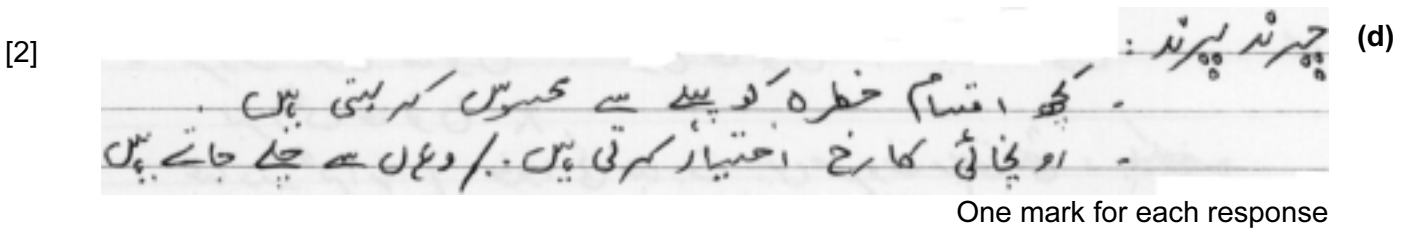 (d) چرند پرند :
[2]
- کچھ اقسام خطرہ کو پہلے سے محسوس کر لیتی ہیں .
- اونچائی کا رخ اختیار کرتی ہیں ./ وہاں سے چلے جاتے ہیں
One mark for each response